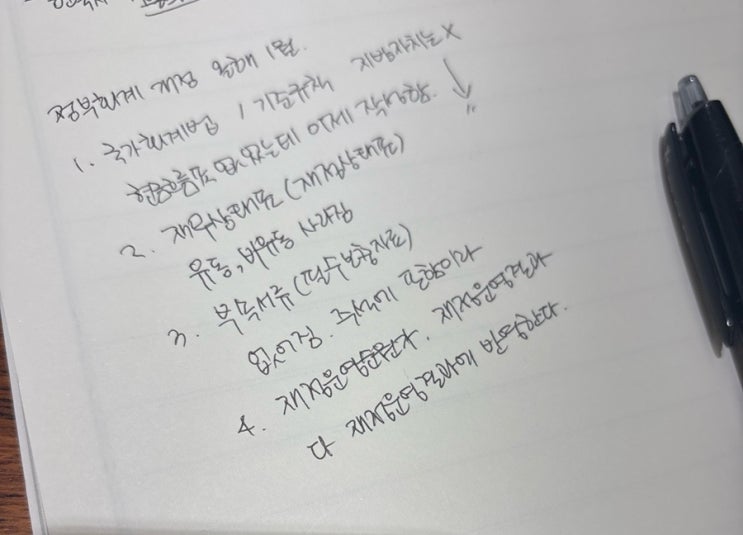 정부회계 개정 올해 1월.
1. 국가회계법, 기준규칙 지방자치는 X
현금흐름표 없었는데 이제 작성함. ↓ "
2. 재무상태표 (재정상태표)
유동, 비유동 사라짐
3. 부속서류 (필수보충자료)
없어짐. 주석에 포함이라
4. 재정운영순원가, 재정운영결과
다 재정운영결과에 반영한다.